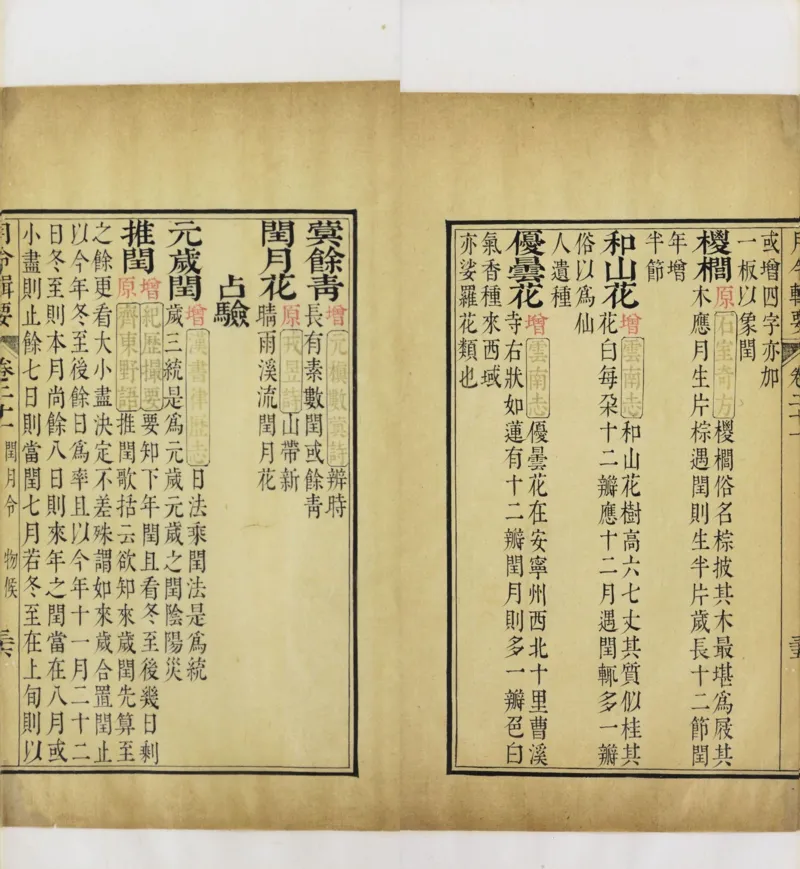 月令輯要 卷二十一
或增四字亦加
一板以象閏
椶櫚 原 石室奇方 椶櫚俗名棕披其木最堪為屐其
木應月生片棕遇閏則生半片歲長十二節閏
年增
半節
和山花 增 雲南志 和山花樹高六七丈其質似桂其
花白每朶十二瓣應十二月遇閏輒多一瓣
俗以爲仙
人遺種
優曇花 增 雲南志 優曇花在安寧州西北十里曹溪
寺右狀如蓮有十二瓣閏月則多一瓣色白
氣香種來西域
亦娑羅花類也
蓂餘靑 增 元稹數蓂詩 辨時
長有素數閏或餘靑
閏月花 原 戎昱詩 山帶新
晴雨溪流閏月花
占驗
元歲閏 增 漢書律歷志 日法乘閏法是爲統
歲三統是爲元歲元歲之閏陰陽災
推閏 增 紀歷撮要 要知下年閏且看冬至後幾日剩
原 齊東野語 推閏歌括云欲知來歲閏先算至
之餘更看大小盡決定不差殊謂如來歲合置閏止
以今年冬至後餘日爲率且以今年十一月二十二
日冬至則本月尚餘八日則來年之閏當在八月或
小盡則止餘七日則當閏七月若冬至在上旬則以
月令輯要 卷二十一 閏月令 物候 三六